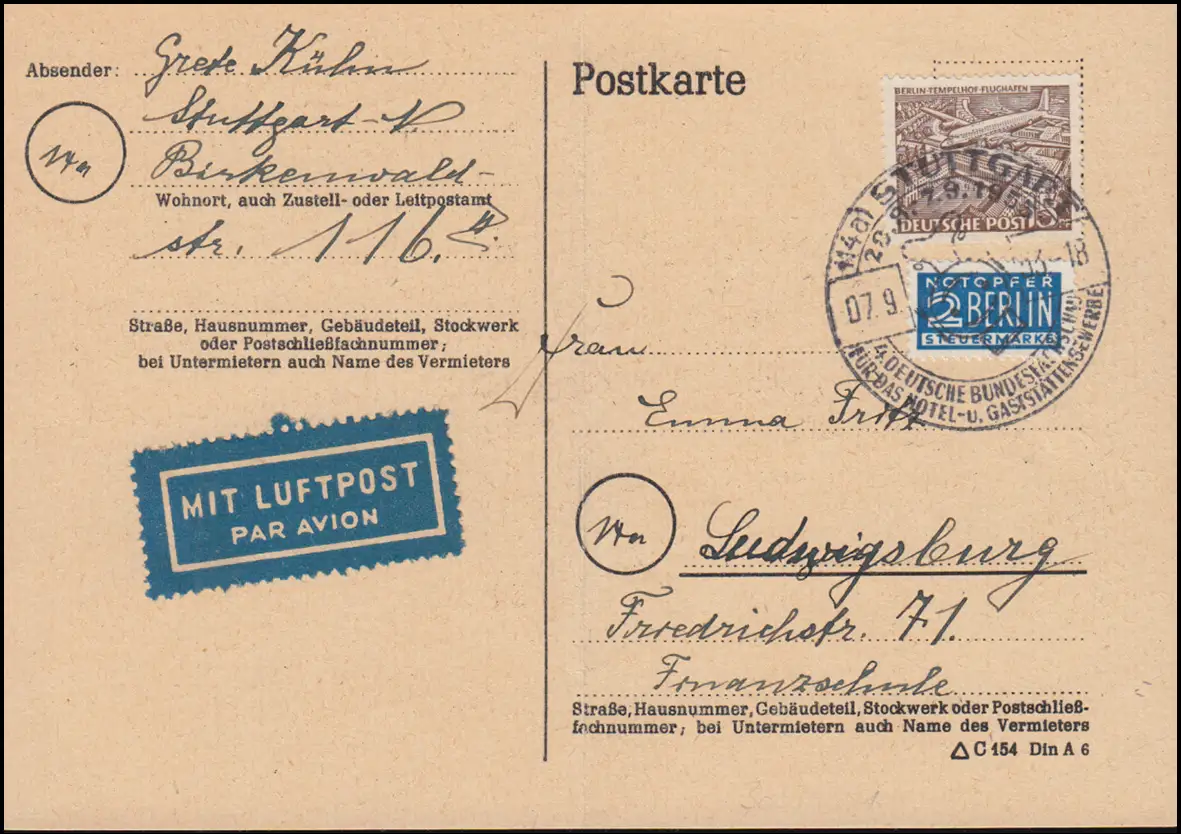 Absender: Grete Kühn
14a
Stuttgart-N
Birkenwald-
Wohnort, auch Zustell- oder Leitpostamt
str. 116.
Straße, Hausnummer, Gebäudeteil, Stockwerk
oder Postschließfachnummer;
bei Untermietern auch Name des Vermieters
MIT LUFTPOST
PAR AVION
Postkarte
BERLIN-TEMPELHOF-FLUGHAFEN
DEUTSCHE POST
(14a) STUTTGART
07.9
-18
4. DEUTSCHE BUNDESFACHSCHAU
FÜR DAS HOTEL- U. GASTSTÄTTENGEWERBE
NOTOPFER
2 BERLIN
STEUERMARKE
Frau
Emma Fritz
14a
Ludwigsburg
Friedrichstr. 71.
Finanzschule
Straße, Hausnummer, Gebäudeteil, Stockwerk oder Postschließ-
fachnummer; bei Untermietern auch Name des Vermieters
C 154 Din A 6